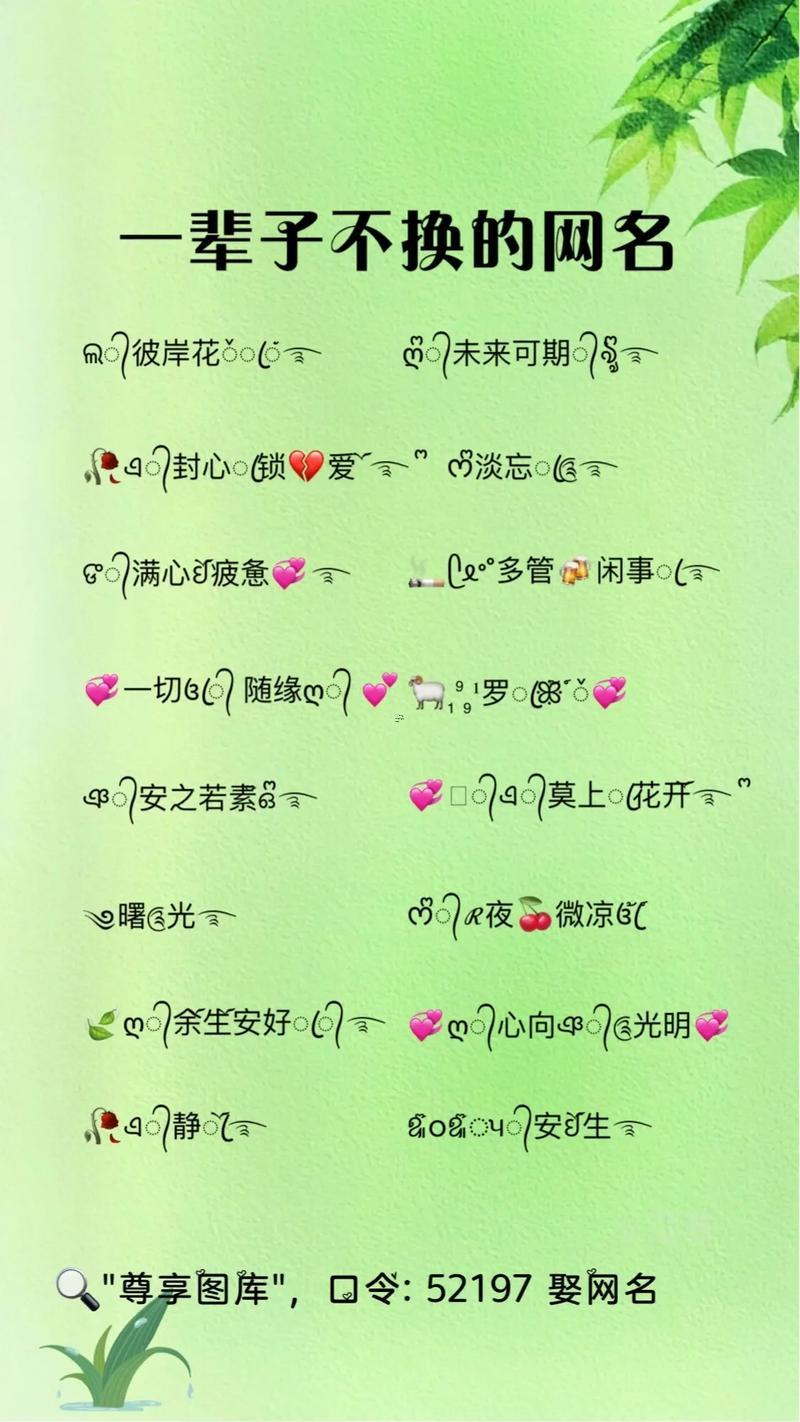 一辈子不换的网名
ଲ᭄彼岸花ꦿ໒࿐ ღ᭄未来可期᭄ꦿ࿐
🥀ঞ᭄封心ꦿ锁💔爱࿐ღ ო淡忘ꦿ༊࿐
ণ᭄满心ꦿ疲惫💞࿐ 🚬ᩚ多管🍻闲事ꦿ࿐
💞一切ვ᭄ 随缘ღ᭄ 💕 🐏₁⁹₉¹罗ꦿꕥ💞
ঞ᭄安之若素࿐ 💞᭄এ᭄莫上ꦿ花开࿐ღ
༄曙༊光࿐ ო᭄ℛ夜🍒微凉ვ
🍃ღ᭄余生安好ꦿ᭄࿐ 💞ღ᭄心向ঞ᭄༊光明💞
🥀এ᭄静ꦿ࿐ ᭄安ꦿ生࿐
🔍"尊享图库"，口令: 52197 娶网名